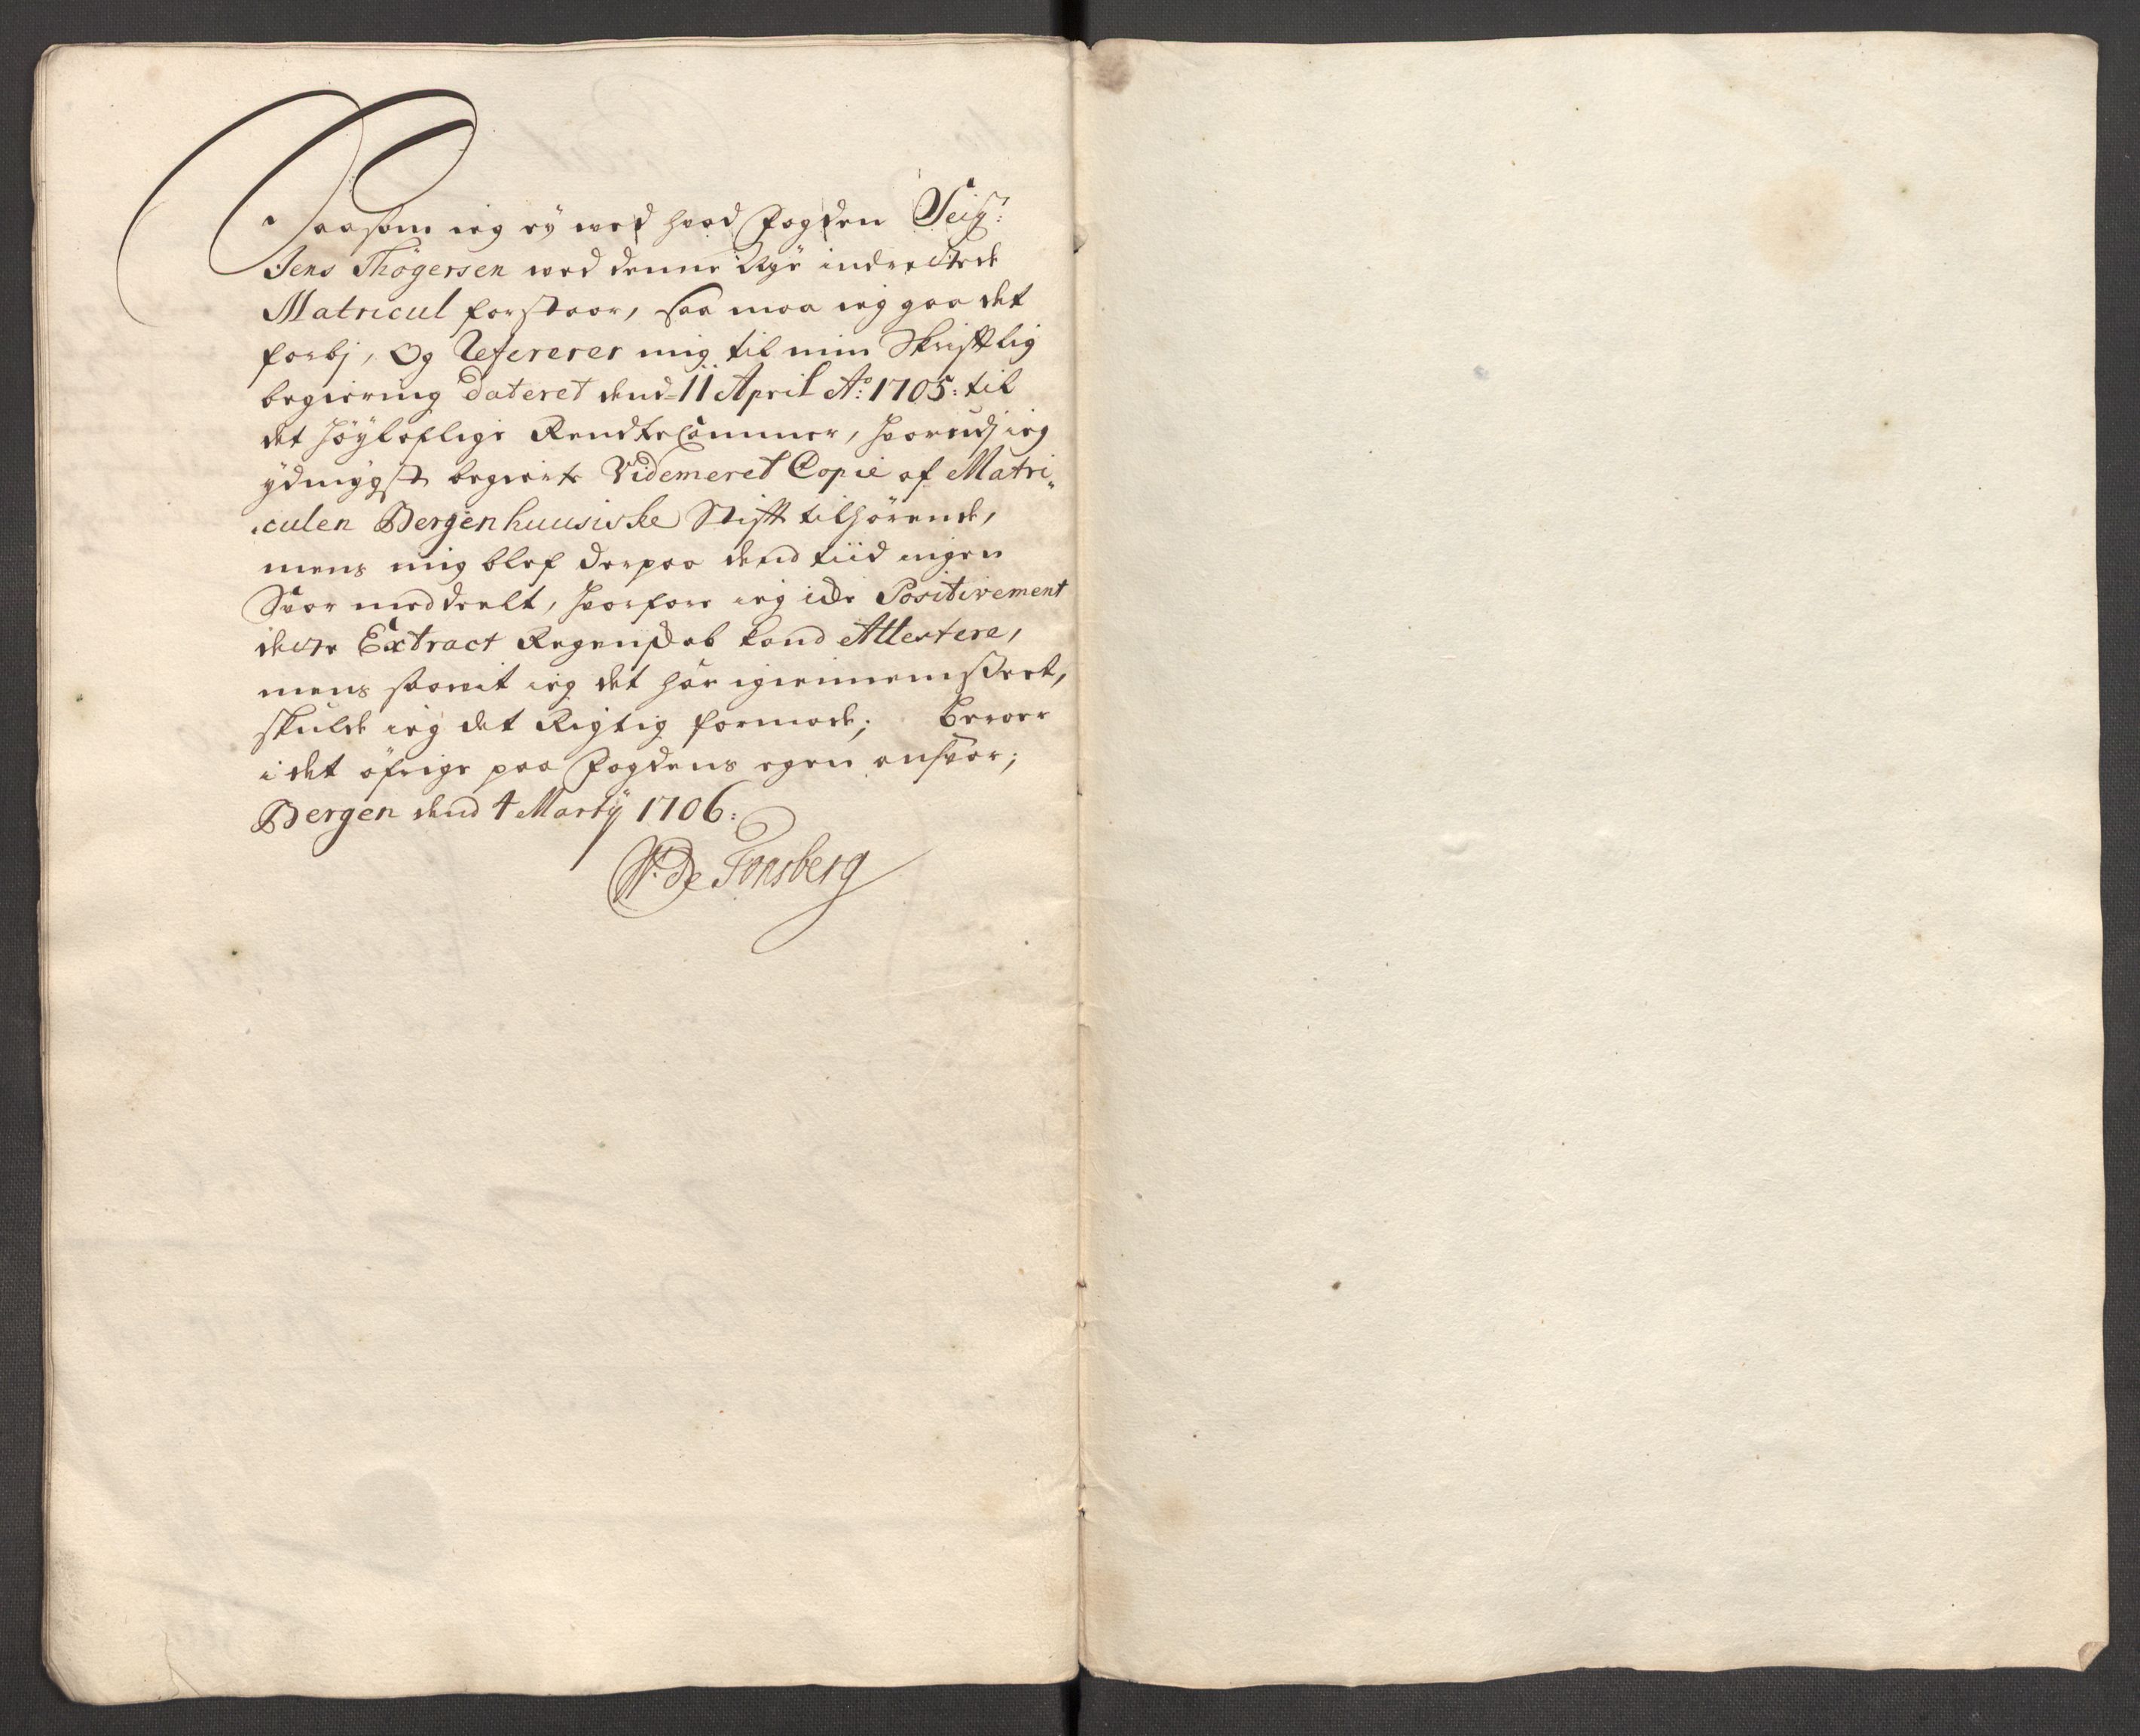 Saasom ieg ey wed hvad Fogden Seigr:
Jens Thögersen wed denne Nye indrettede
Matricul forstaar, saa maa ieg gaa det
forbj, Og Refererer mig til min Skriftlig
begiering Dateret dend 11 April Ao: 1705: til
det höyloflige RendteCammer, hvorudj ieg
ydmygst begierte Videmeret Copie af Matri„
culen Bergenhuusiske Stift tilhörende,
mens mig blef Derpaa dend tiid ingen
Svar meddeelt, hvorfore ieg icke Positivement
dette Extract Regenskab kand Attestere,
mens saavit ieg det har igiennemseet,
skulde ieg det Rigtig formode; Beroer
i det öfrige paa Fogdens egen ansvar;
Bergen dend 4 Martij 1706:
De Tonsberg